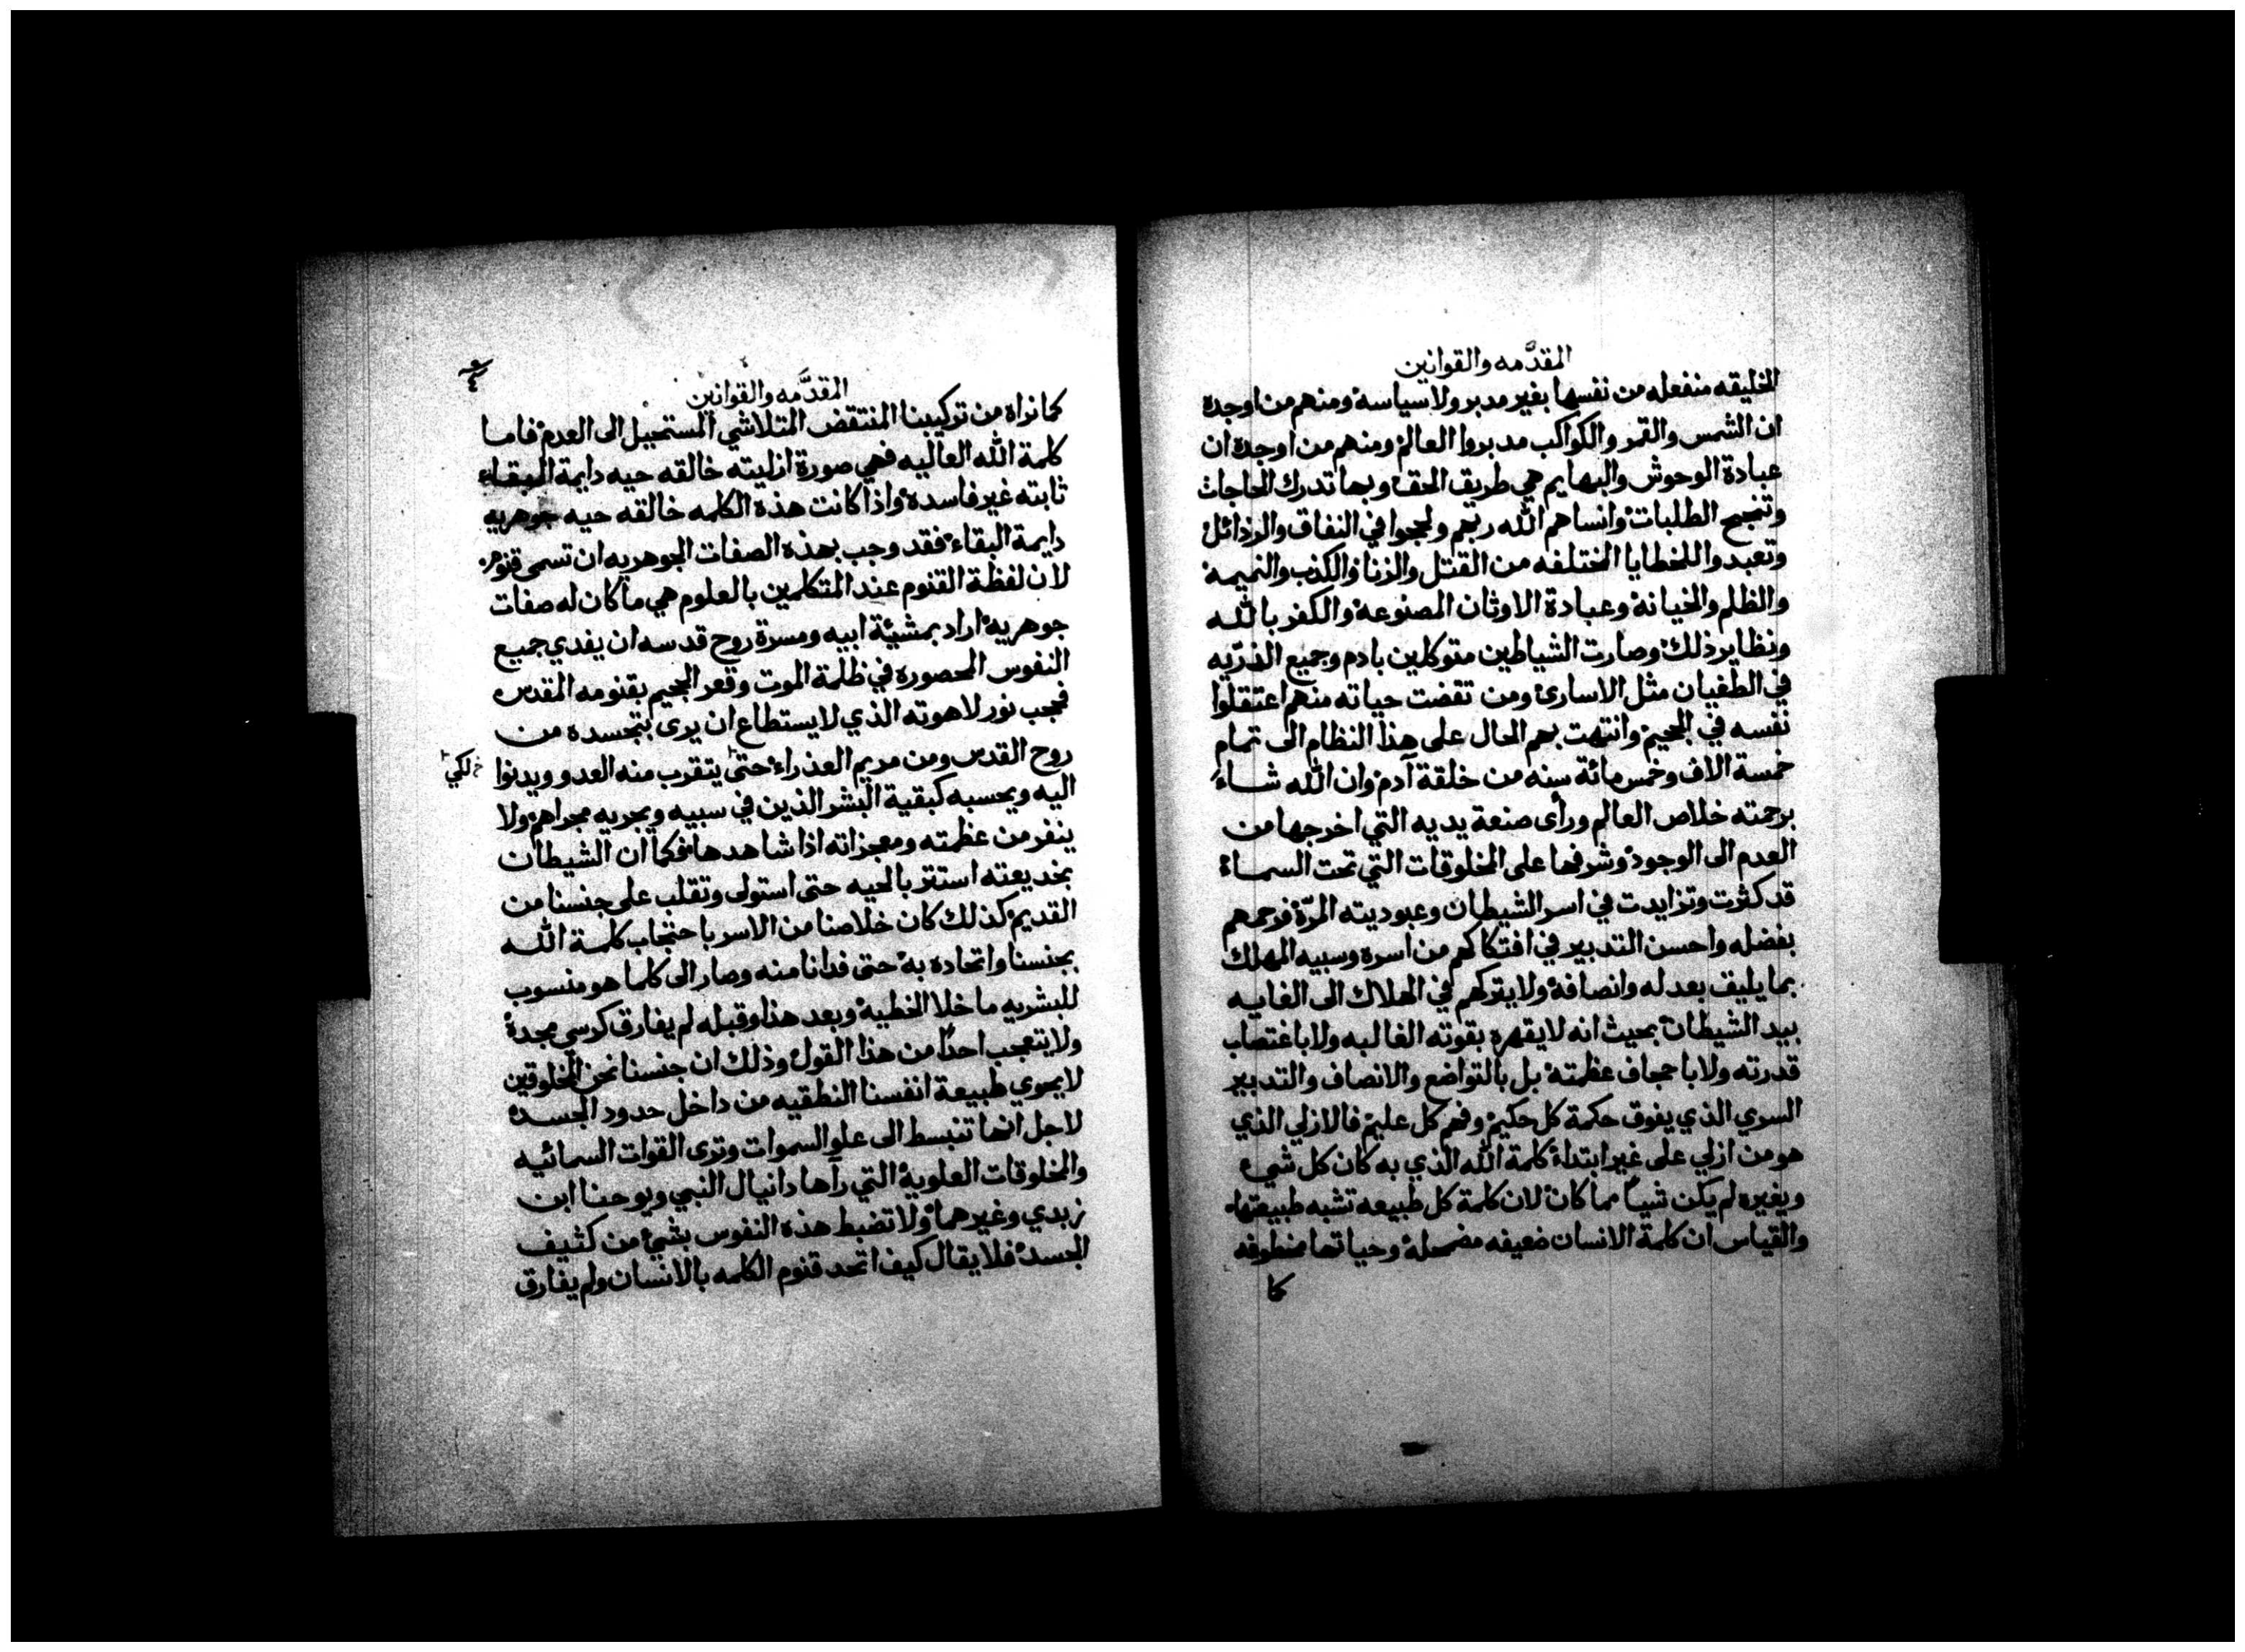 المقدَّمه والقوانين
الخليقه منفعله من نفسها بغير مدبر ولا سياسة ومنهم من اوجده
ان الشمس والقمر والكواكب مدبروا العالم ومنهم من اوجده ان
عبادة الوحوش والبهايم هي طريق الحق وبها تدرك الحاجات
وتنجح الطلبات وانساهم الله ربهم ولججوا في النفاق والرذائل
وتعبدوا للخطايا المختلفه من القتل والزنا والكذب والنميمة
والظلم والخيانة وعبادة الاوثان المصنوعة والكفر بالله
ونظاير ذلك وصارت الشياطين متوكلين بادم وجميع الذرّيه
في الطغيان مثل الاسارى ومن تقضت حياته منهم اعتقلوا
نفسه في الجحيم وانتهت بهم الحال على هذا النظام الى تمام
خمسة الاف وخمس مائة سنه من خلقة آدم وان الله شاء
برحمته خلاص العالم ورأى صنعة يديه التي اخرجها من
العدم الى الوجود وشرفها على المخلوقات التي تحت السماء
قد كثرت وتزايدت في اسر الشيطان وعبوديته المرّة فرحمهم
بفضله واحسن التدبير في افتكاكهم من اسره وسبيه المهلك
بما يليق بعدله وانصافه ولا يتركهم في الهلاك الى الغايه
بيد الشيطان بحيث انه لا يقهره بقوته الغالبه ولا باغتصاب
قدرته ولا باحجاف عظمته بل بالتواضع والانصاف والتدبير
السري الذي يفوق حكمة كل حكيم وفهم كل عليم فالازلي الذي
هو من ازلي على غير ابتداء كلمة الله الذي به كان كل شيء
وبغيره لم يكن شياً مما كان لان كلمة كل طبيعه تشبه طبيعتها
والقياس ان كلمة الانسان ضعيفه مضمحلة وحياتها منطوفه
كما
المقدَّمه والقوانين
كما نراه من تركيبنا المنتقض المتلاشي المستحيل الى العدم فاما
كلمة الله العاليه فهي صورة ازليته خالقه حيه دايمة البقاء
ثابته غير فاسده واذا كانت هذه الكلمه خالقه حيه جوهريه
دايمة البقاء فقد وجب بهذه الصفات الجوهريه ان تسمى قنوم
لان لفظة القنوم عند المتكلمين بالعلوم هي ما كان له صفات
جوهرية اراد بمشيئة ابيه ومسرة روح قدسه ان يفدي جميع
النفوس المحصوره في ظلمة الموت وقعر الجحيم بقنومه المقدس
فحجب نور لاهوته الذي لا يستطاع ان يرى بتجسده من
روح القدس ومن مريم العذراء حتى يتقرب منه العدو ويدنوا
لكي
اليه ويحسبه كبقية البشر الذين في سبيه ويجريه مجراهم ولا
ينفر من عظمته ومعجزاته اذا شاهدها فكما ان الشيطان
بخديعته استتر بالحيه حتى استولى وتقلب على جنسنا من
القديم كذلك كان خلاصنا من الاسر باحتجاب كلمة الله
بجنسنا واتحاده به حتى فدانا منه وصار الى كلما هو منسوب
للبشريه ما خلا الخطية وبعد هذا وقبله لم يفارق كرسي مجده
ولا يتعجب احدًا من هذا القول وذلك ان جنسنا نحن المخلوقين
لا يحوي طبيعة انفسنا النطقيه من داخل حدود الجسد
لاجل انها تنبسط الى علو السموات وترى القوات السمائيه
والمخلوقات العلوية التي رآها دانيال النبي ويوحنا ابن
زبدي وغيرهما ولا تضبط هذه النفوس بشئ من كثيف
الجسد فلا يقال كيف اتحد قنوم الكلمه بالانسان ولم يفارق